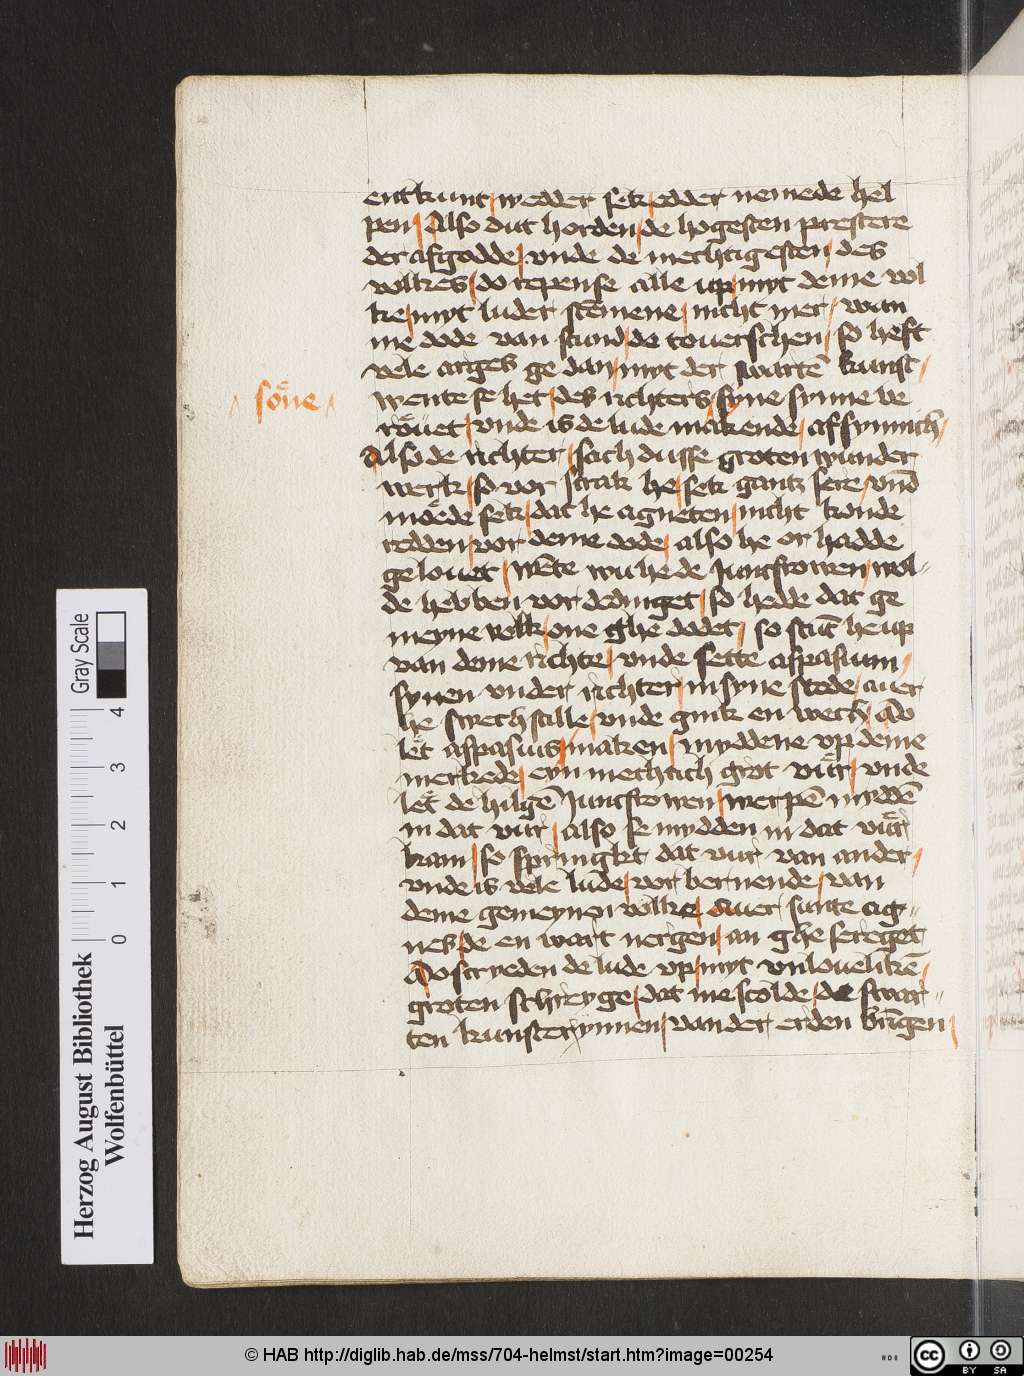 entkunt wedder sek edder nemede hel
pen Also dut horden de hogesten prestere
der afgodde vnde de mechtigesten des
volkes do repen se alle up myt deme vol
ke myt luder stēmene nicht mer wan
me dode van stund de touerschen so heft
vele arges ge dan myt der swartē kunst
wente se het des richters syne synne be
söne
röuet vnde is de lude makende afsynnich
Also de richter sach dusse groten wunder
werk so vor scrak he sek gantz sere vnd
möede sek dat he agneten nicht konde
redden vor deme dode also he or hadde
gelouet wēte wu he de Juncfrowen wol-
de hebben vor dedinget so hedde dat ge
meyne volk one ghe dodet so stūt he up
van deme richte vnde sette aspasium
synen vnder richter in syne stede auer
he swech stille vnde gink en wech Do
let aspasius maken myddene vp deme
merkede eyn mechtich grot vür vnde
let de hilgē Juncfrowen werpē myddē
in dat vur also se mydden in dat vür
kam so springkt dat vur van ander
vnde is vele lude vor bernende van
deme gemeynen volke Auer sunte ag-
nes de en wart nergen an ghe sereget
Do scryeden de lude vp myt vnlouelikē
groten schreyge dat me scolde de swar-
ten kunsterynnen van der erden brīgen
Herzog August Bibliothek
Wolfenbüttel
0 1 2 3 4
Gray Scale
© HAB http://diglib.hab.de/mss/704-helmst/start.htm?image=00254
HAB
cc
BY SA